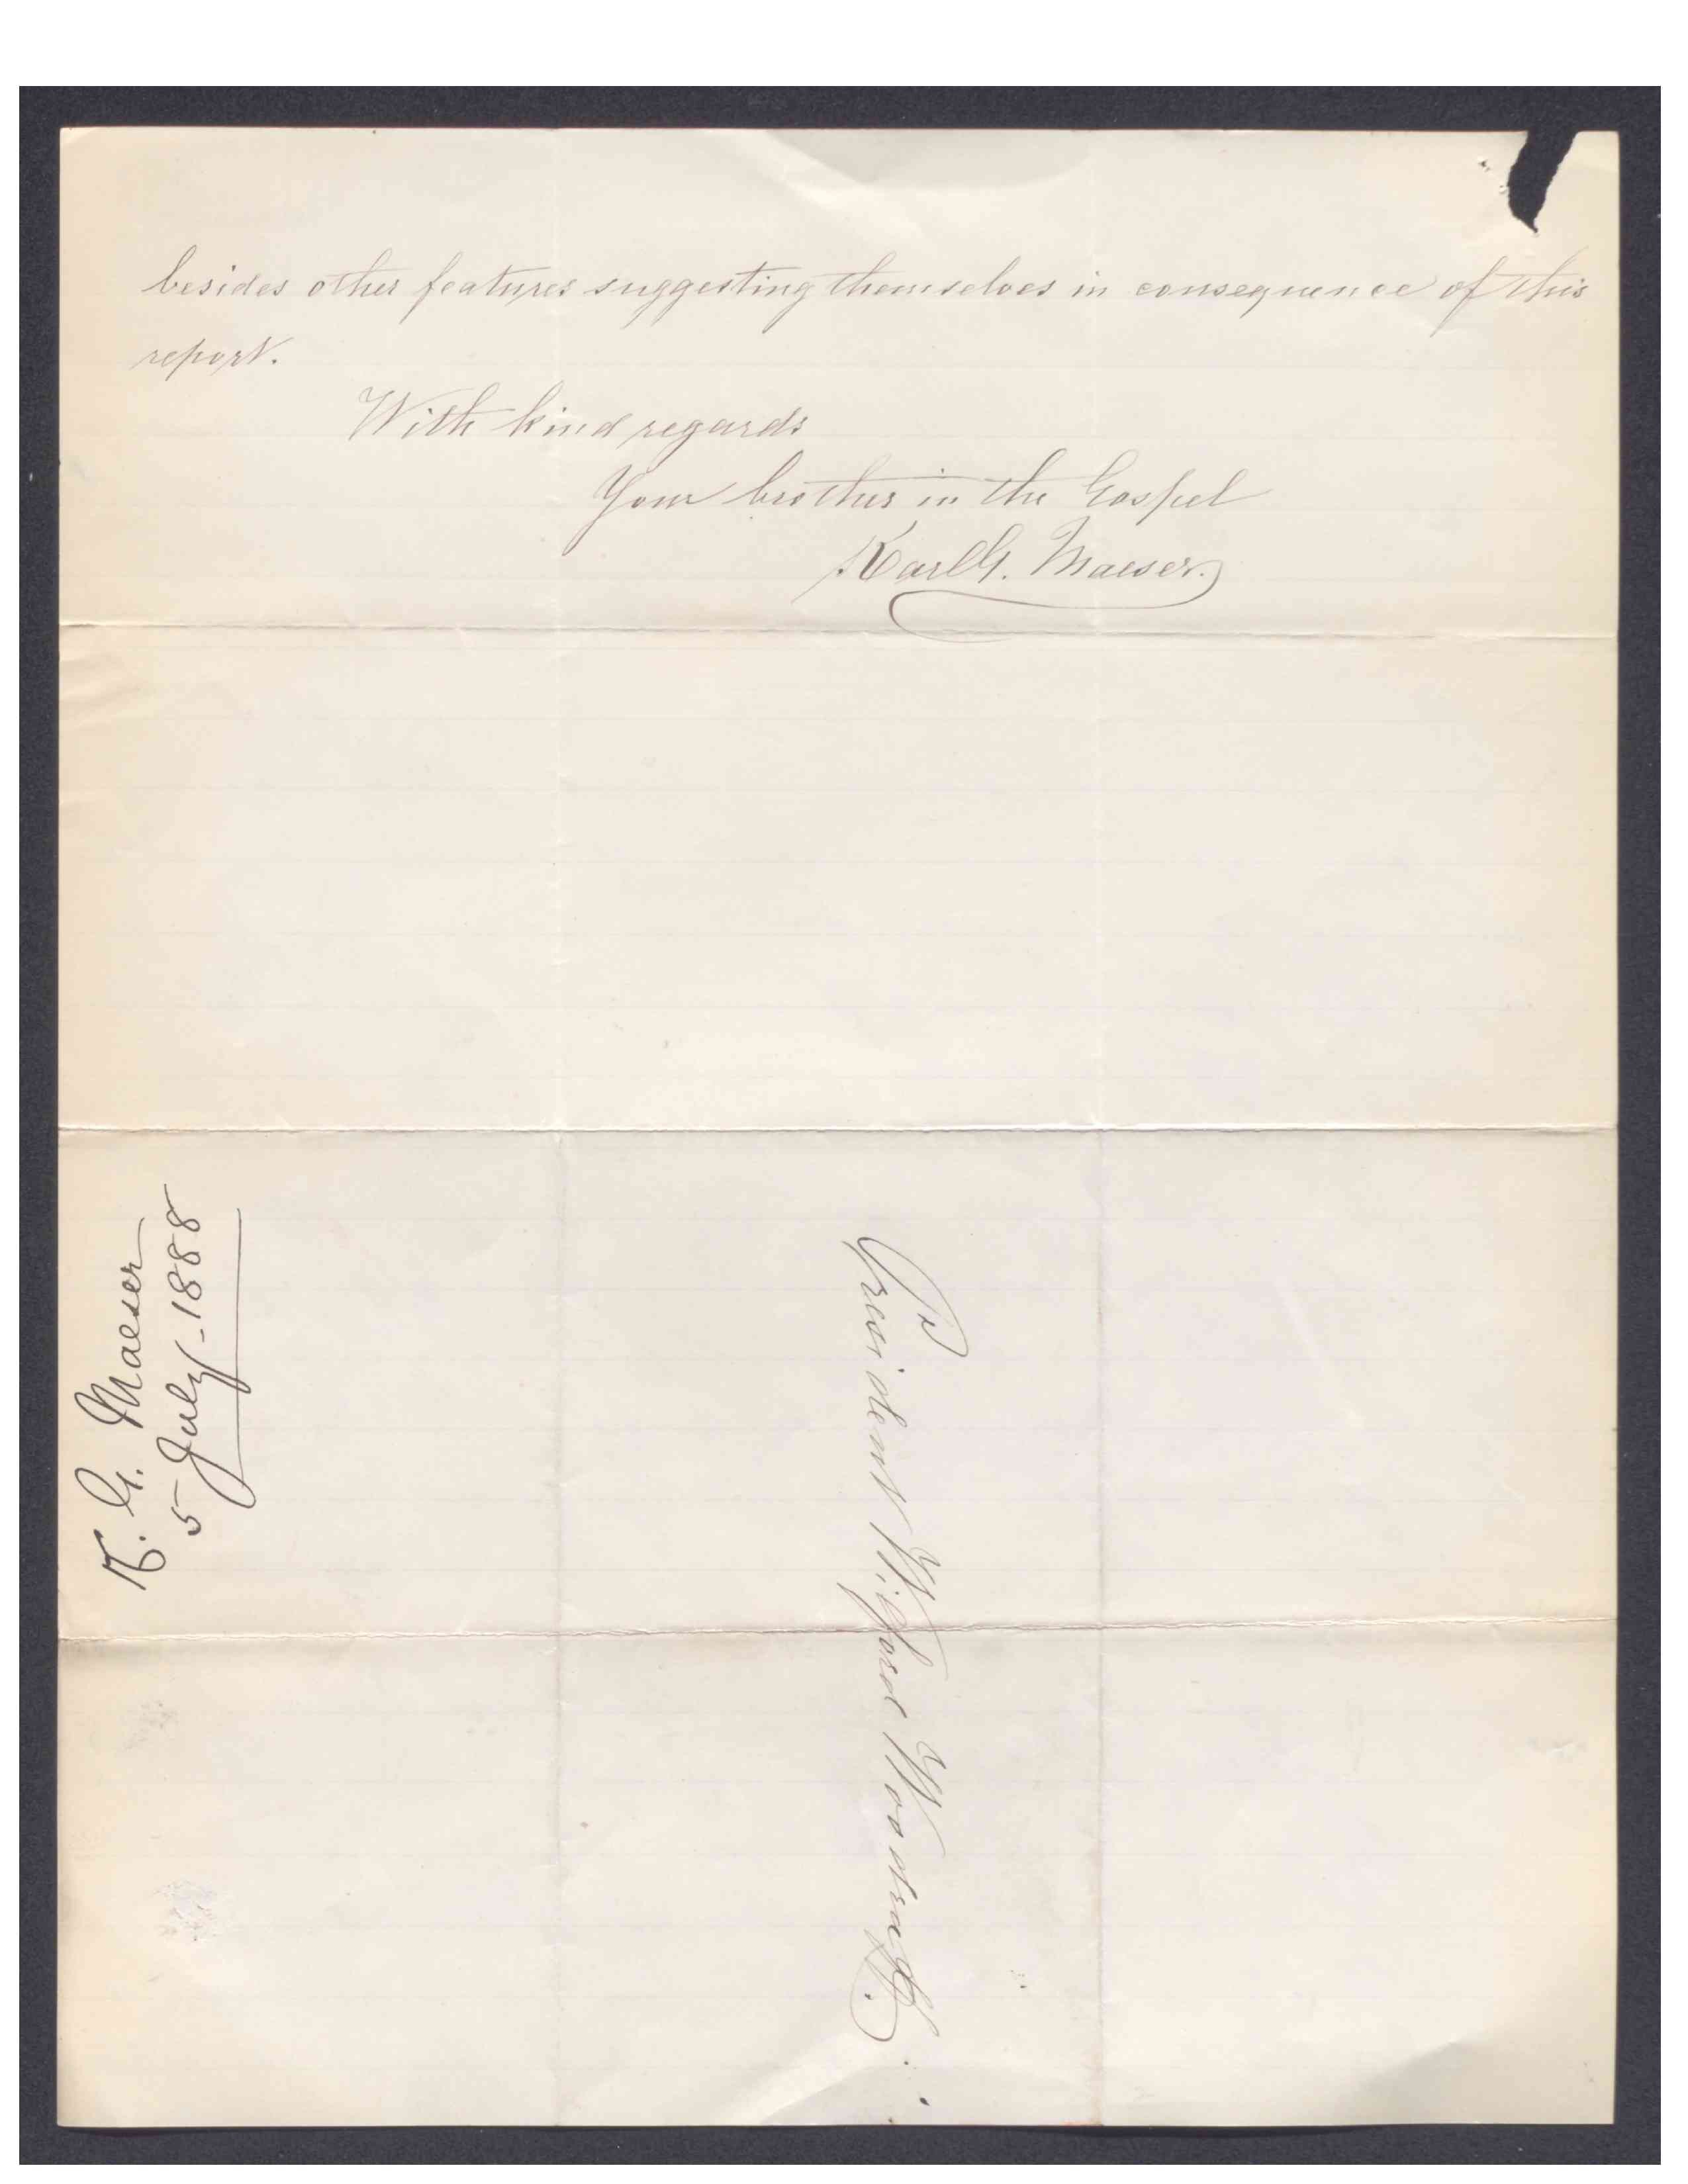 besides other features suggesting themselves in consequence of this
report.
With kind regards
Your brother in the Gospel
Karl G. Maeser.
K. G. Maeser
5 July-1888
President Wilford Woodruff.